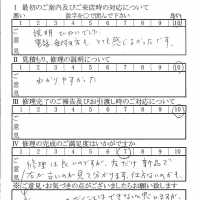 I 最初のご案内及びご来店時の対応について
悪い 数字を○で囲んで下さい 良い
1 2 3 4 5 6 7 8 9 10
ご意見
説明 ていねいでした
電話 受付の方も とても感じよかったです。
II 見積もり、修理の説明について
1 2 3 4 5 6 7 8 9 10
ご意見
わかりやすかった
III 修理完了のご報告及びお引渡し時の対応について
1 2 3 4 5 6 7 8 9 10
ご意見
IV 修理の完成のご満足度はいかがですか
1 2 3 4 5 6 7 8 9 10
ご意見
修理は良いのですが、左だけ新品で
右が古いのが見て分かります。仕方ないのですが。
※ご意見・お気づきの点がございましたらお願い致します